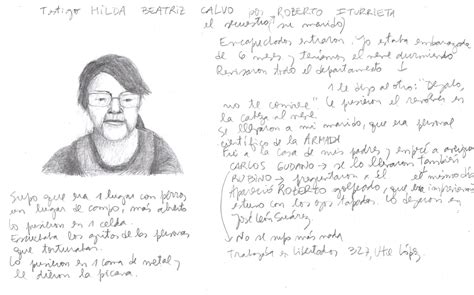 Testigo HILDA BEATRIZ CALVO por ROBERTO ITURRIETA
el secuestro su marido)
Encapuchados entraron. Yo estaba embarazada
de 6 meses y teníamos el nene durmiendo
Revisaron todo el departamento
1 le dijo al otro: "Dejalo,
no te conviene" Le pusieron el revólver en
la cabeza al nene
Se llevaron a mi marido, que era personal
científico de la ARMADA
Fui a la casa de mis padres y empecé a averiguar
CARLOS → se lo llevaron también
RUBINO → preguntaron a él el mismo día
Apareció ROBERTO golpeado, que
estuvo con los ojos tapados. Lo dejaron en
José León Suárez
→ No se supo más nada
Trabajaba en Libertador 327, Vte López,
Supo que era 1 lugar con perros
un lugar de campo, más abierto
Lo pusieron en 1 celda.
Escuchaba los gritos de las personas
que torturaban.
Lo pusieron en 1 cama de metal y
le dieron la picana.